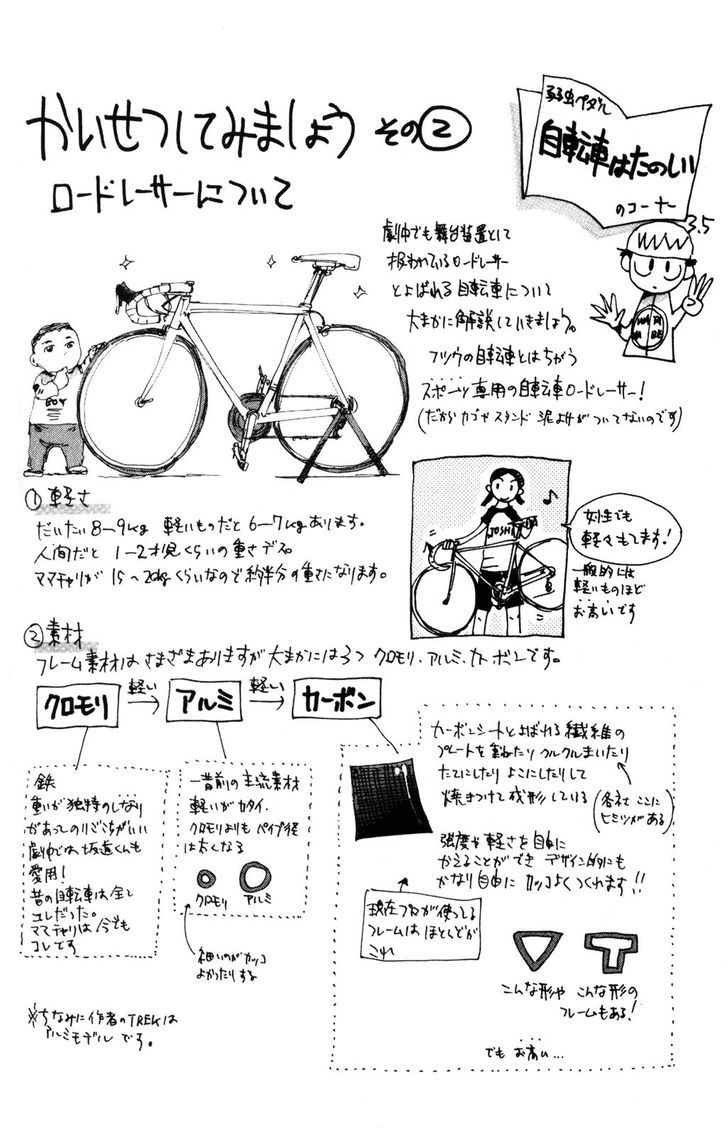 かいせつしてみましょう その②
ロードレーサーについて
弱虫ペダル
自転車はたのしい
のコーナー
3.5
劇中でも舞台装置として
扱われているロードレーサー
とよばれる自転車について
大まかに解説していきましょう。
フツウの自転車とはちがう
スポーツ専用の自転車ロードレーサー!
(だからカゴやスタンド 泥よけがついてないのです)
BOY
①軽さ
だいたい8〜9kg 軽いものだと6〜7kgあります。
人間だと 1〜2才児くらいの重さデス。
ママチャリが 15〜20kgくらいなので約半分の重さになります。
JOSHI
♪
女生でも
軽々もてます!
一般的には
軽いものほど
お高いです
②素材
フレーム素材は さまざまありますが大まかには3つ クロモリ、アルミ、カーボンです。
クロモリ
軽い
→
アルミ
軽い
→
カーボン
鉄
重いが独特のしなり
があってのりごこちがいい
劇中では坂道くんも
愛用!
昔の自転車は全て
コレだった。
ママチャリは今でも
コレです
一昔前の主流素材
軽いがカタイ、
クロモリよりもパイプ径
は太くなる
クロモリ アルミ
細いのがカッコ
よかったりする
カーボンシートとよばれる繊維の
プレートを重ねたり クルクルまいたり
たてにしたり よこにしたりして
焼きつけて成形している
(各社ここに
ヒミツがある)
強度や軽さを自由に
かえることができ デザイン的にも
かなり自由に カッコよくつくれます!!
現在プロが使ってる
フレームは ほとんどが
これ
こんな形や こんな形の
フレームもある!
でも お高い…
※ちなみに作者のTREKは
アルミモデル です。